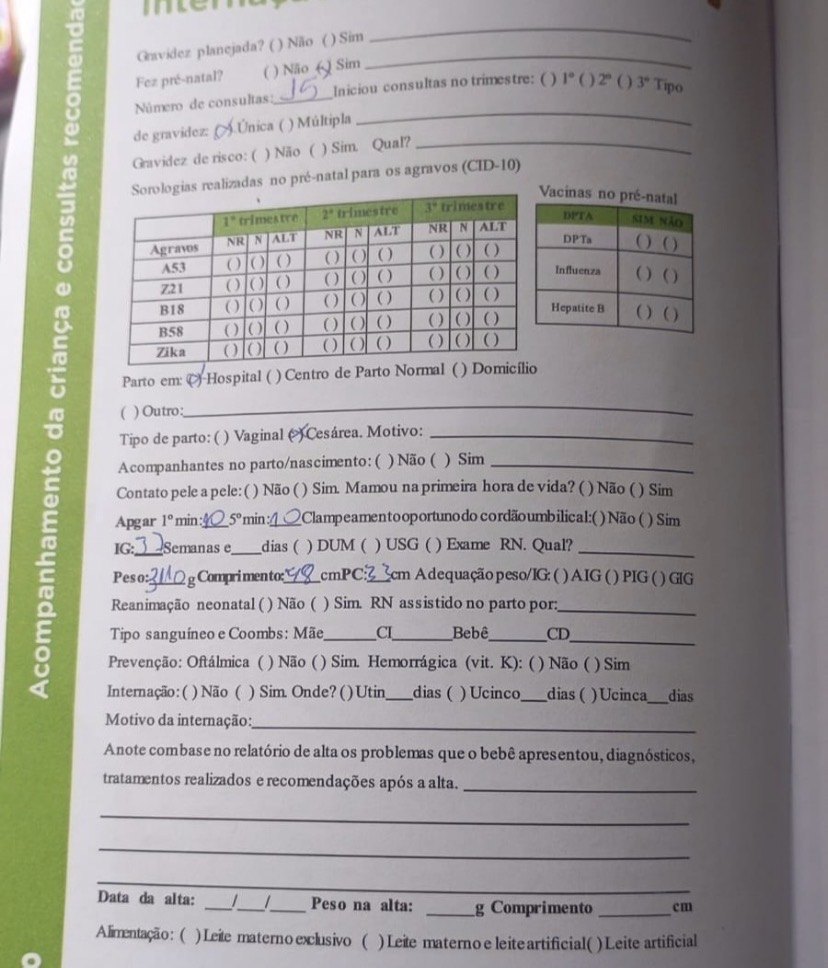 Acompanhamento da criança e consultas recomendad
Gravidez planejada? ( ) Não ( ) Sim ____
Fez pré-natal? ( ) Não (x) Sim ____
Número de consultas: 15 Iniciou consultas no trimestre: ( ) 1º ( ) 2º ( ) 3º Tipo
de gravidez: (x) Única ( ) Múltipla ____
Gravidez de risco: ( ) Não ( ) Sim. Qual? ____
Sorologias realizadas no pré-natal para os agravos (CID-10)
1º trimestre 2º trimestre 3º trimestre
Agravos NR N ALT NR N ALT NR N ALT
A53 ( ) ( ) ( ) ( ) ( ) ( ) ( ) ( ) ( )
Z21 ( ) ( ) ( ) ( ) ( ) ( ) ( ) ( ) ( )
B18 ( ) ( ) ( ) ( ) ( ) ( ) ( ) ( ) ( )
B58 ( ) ( ) ( ) ( ) ( ) ( ) ( ) ( ) ( )
Zika ( ) ( ) ( ) ( ) ( ) ( ) ( ) ( ) ( )
Vacinas no pré-natal
DPTA SIM NÃO
DPTa ( ) ( )
Influenza ( ) ( )
Hepatite B ( ) ( )
Parto em: (x) Hospital ( ) Centro de Parto Normal ( ) Domicílio
( ) Outro: ____
Tipo de parto: ( ) Vaginal (x) Cesárea. Motivo: ____
Acompanhantes no parto/nascimento: ( ) Não ( ) Sim ____
Contato pele a pele: ( ) Não ( ) Sim. Mamou na primeira hora de vida? ( ) Não ( ) Sim
Apgar 1º min: 10 5º min: 10 Clampeamento oportuno do cordão umbilical: ( ) Não ( ) Sim
IG: Semanas e ____ dias ( ) DUM ( ) USG ( ) Exame RN. Qual? ____
Peso: g Comprimento: 48 cm PC: 33 cm Adequação peso/IG: ( ) AIG ( ) PIG ( ) GIG
Reanimação neonatal ( ) Não ( ) Sim. RN assistido no parto por: ____
Tipo sanguíneo e Coombs: Mãe ____ CI ____ Bebê ____ CD ____
Prevenção: Oftálmica ( ) Não ( ) Sim. Hemorrágica (vit. K): ( ) Não ( ) Sim
Internação: ( ) Não ( ) Sim. Onde? ( ) Utin ____ dias ( ) Ucinco ____ dias ( ) Ucinca ____ dias
Motivo da internação: ____
Anote com base no relatório de alta os problemas que o bebê apresentou, diagnósticos,
tratamentos realizados e recomendações após a alta. ____
Data da alta: ____/____/____ Peso na alta: ____ g Comprimento ____ cm
Alimentação: ( ) Leite materno exclusivo ( ) Leite materno e leite artificial ( ) Leite artificial